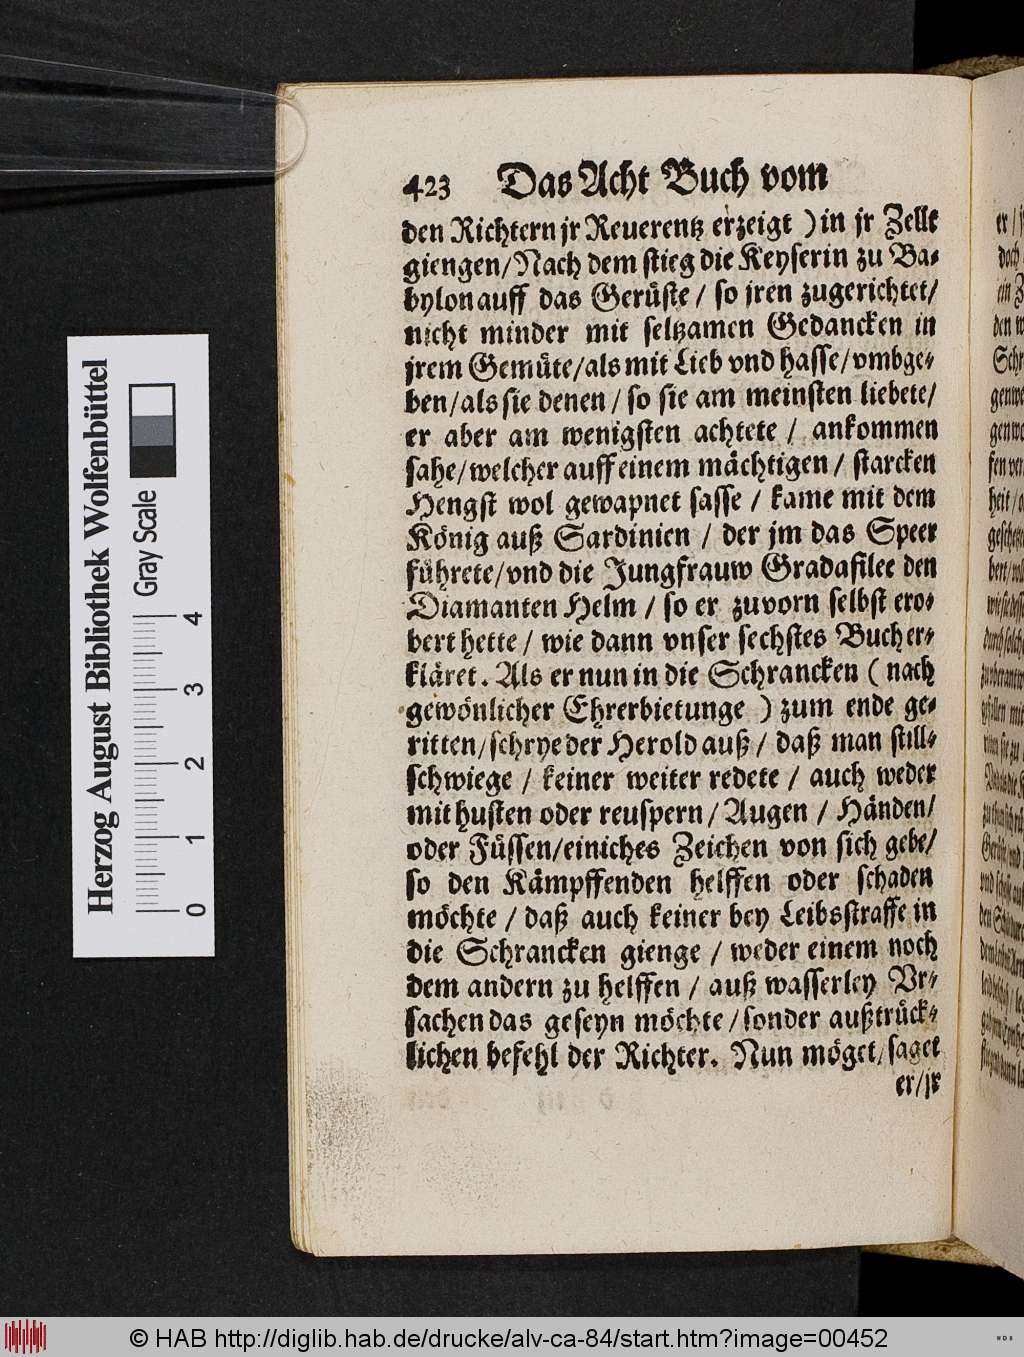 423 Das Acht Buch vom
den Richtern jr Reuerentz erzeigt ) in jr Zellt
giengen/ Nach dem stieg die Keyserin zu Ba-
bylon auff das Gerüste / so jren zugerichtet/
nicht minder mit seltzamen Gedancken in
jrem Gemüte/ als mit Lieb vnd hasse/ vmbge-
ben/ als sie denen / so sie am meinsten liebete/
er aber am wenigsten achtete / ankommen
sahe/ welcher auff einem mächtigen / starcken
Hengst wol gewapnet sasse / kame mit dem
König auß Sardinien / der jm das Speer
führete/ vnd die Jungfrauw Gradafilee den
Diamanten Helm / so er zuvorn selbst ero-
bert hette / wie dann vnser sechstes Buch er-
kläret. Als er nun in die Schrancken ( nach
gewönlicher Ehrerbietunge ) zum ende ge-
ritten/ schrye der Herold auß / daß man still-
schwiege / keiner weiter redete / auch weder
mit husten oder reuspern / Augen / Händen/
oder Füssen/ einiches Zeichen von sich gebe/
so den Kämpffenden helffen oder schaden
möchte / daß auch keiner bey Leibsstraffe in
die Schrancken gienge / weder einem noch
dem andern zu helffen / auß wasserley Vr-
sachen das geseyn möchte / sonder außtrück-
lichen befehl der Richter. Nun möget/ saget
er/ jr
Herzog August Bibliothek Wolfenbüttel
Gray Scale
0 1 2 3 4
© HAB http://diglib.hab.de/drucke/alv-ca-84/start.htm?image=00452